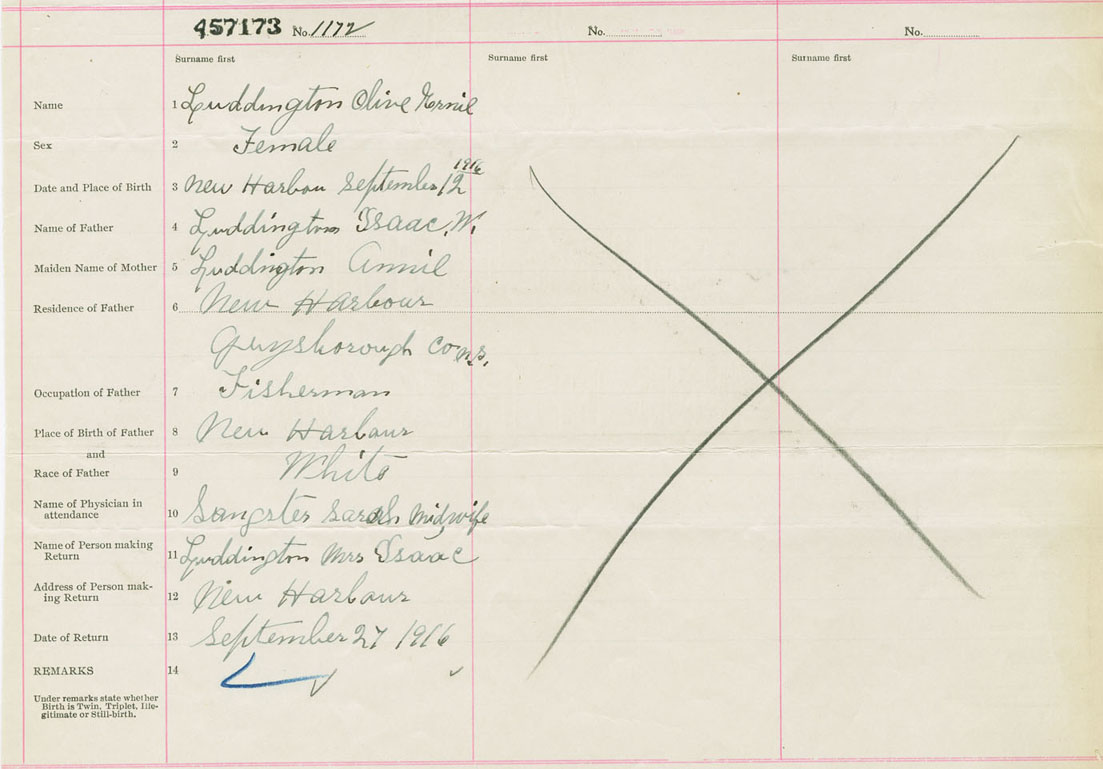 457173 No. 1172 No. No.
Surname first Surname first Surname first
Name 1 Luddington Olive
Sex 2 Female
1916
Date and Place of Birth 3 New Harbou September 12
Name of Father 4 Luddington Isaac. W.
Maiden Name of Mother 5 Luddington Annie
Residence of Father 6 New Harbour
Guysborough
Occupation of Father 7 Fisherman
Place of Birth of Father 8 New Harbour
and
Race of Father 9 White
Name of Physician in
attendance 10 Sangster Sarah Midwife
Name of Person making
Return 11 Luddington Mrs Isaac
Address of Person mak-
ing Return 12 New Harbour
Date of Return 13 September 27 1916
REMARKS 14
Under remarks state whether
Birth is Twin, Triplet, Ille-
gitimate or Still-birth.